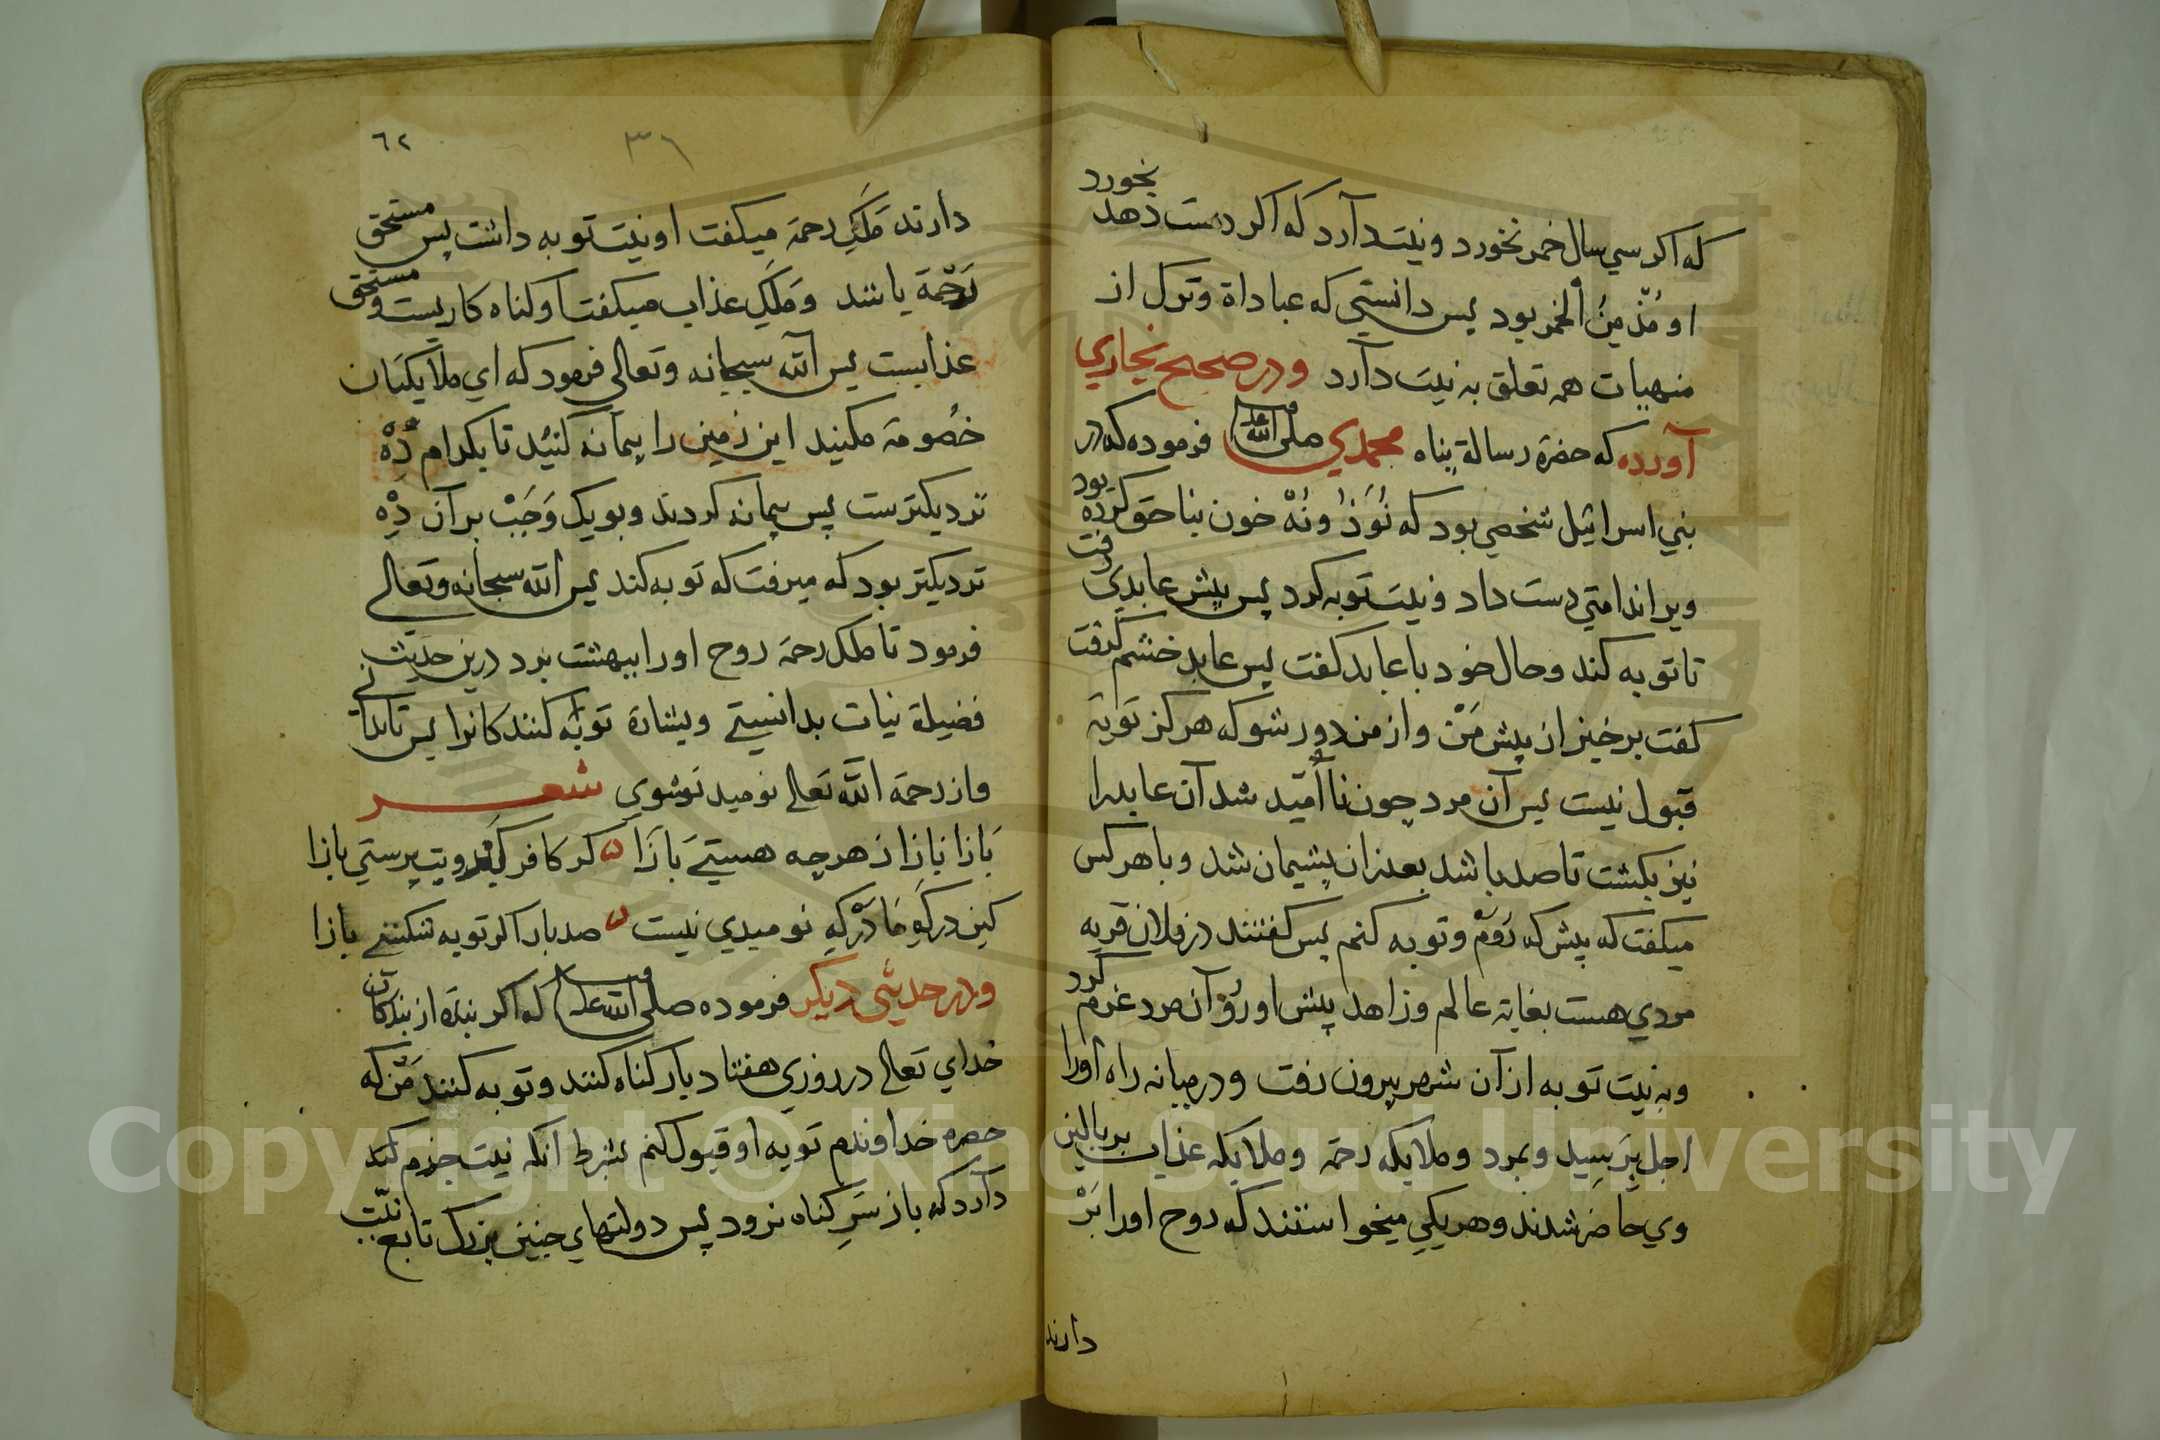 که اکر سي سال خمر نخورد و نیت دآرد که اکر دست دهد بخورد
او مُدْمِنُ ألخمر بود پس دانستي که عباداة و ترک از
منهیات همه تعلق به نیت دآرد ودر صحیح بخاري
آورده که حضرة رسالة پناه محمدي صلی الله علیه وسلم فرموده که در
بني اسرائیل شخصي بود که نُوَدْ ونُهْ خون بناحق کرده بود
ویرا ندامتي دست داد ونیت توبه کرد پس پیش عابدي رفت
تا توبه کند وحال خود با عابد کفت پس عابد خشم کرفت
کفت برخیز از پیش مَنْ واز من دور شو که هرکز توبۀ
قبول نیست پس آن مرد چون نا أمّید شد آن عابدرا
نیز بکشت تا صد باشد بعد از ان پشیمان شد وبا هرکس
میکفت که پیش که رَوَمْ وتوبه کنم پس کفتند در فلان قریه
مردي هست بغایة عالم وزاهد پیش او رَوْ آن مرد عزم کرد
وبه نیت توبه از آن شهر بیرون رفت ودر میانه راه اورا
اجل برَسِید وبمرد وملایکه رحمة وملایکه عذاب بر بالین
وي حاضر شدند وهر یکي میخواستند که روح اورا بَرْ
دارند
٦٢
٣٦
دارند مَلَکِ رحمة میکفت او نیت توبه داشت پس مستحق
رَحْمَة باشد ومَلَکِ عذاب میکفت او کناه کاریست ومستحق
عذابست پس الله سبحانه وتعالی فرمود که اي ملایکتان
خصُومة مکنید این زمین را پیمانه کنید تا بکدام دِهْ
نزدیکترست پس پیمانه کردند وبو یک وَجَبْ بر آن دِهْ
نزدیکتر بود که میرفت که توبه کند پس الله سبحانه وتعالی
فرمود تا ملک رحمة روح اورا ببهشت برد درین حدیث
فضیلة نیات بدانستي وبشارة توبه کنند کانرا پس تا بدآني
واز رحمة الله تعالی نومید نشوي شعر
بَازا بَازا از هرچه هستي بَازا کر کافر کبر وبت پرستي بازا
کین درکَهِ مَا دَرْکَهِ نومیدي نیست صد بار اکر توبه شکستي بازا
ودر حدیثي دیکر فرموده صلی الله علیه وسلم که اکر بندۀ از بندکان
خداي تعالی در روزي هفتاد بار کناه کنند وتوبه کنند مَنْ که
حضرة خداوندم توبه او قبول کنم بشرط آنکه نیت جزم کند
دآرد که باز سَرِ کناه نرود پس دولتهاي چنین بزرک تابع نیّت